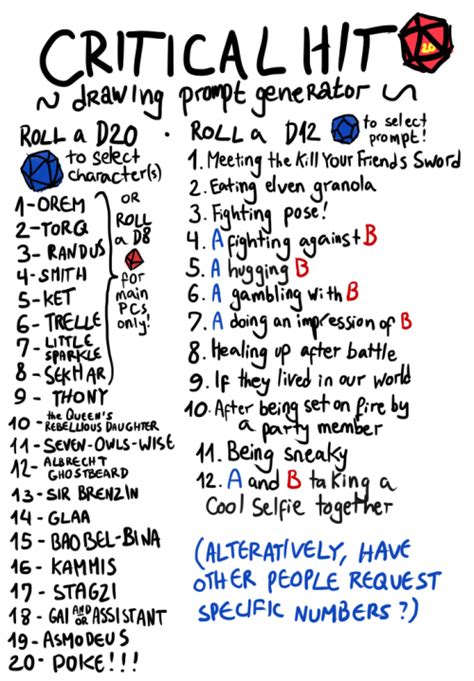 CRITICAL HIT
20
~ drawing prompt generator ~
ROLL a D20 · ROLL a D12
to select
character(s)
to select
prompt!
1-OREM
2-TORQ
3-RANDUS
4-SMITH
5-KET
6-TRELLE
7-LITTLE
SPARKLE
8-SEKHAR
OR
ROLL
a D8
for
main
PCs
only!
9-THONY
10-the QUEEN'S
REBELLIOUS DAUGHTER
11-SEVEN-OWLS-WISE
12-ALBRECHT
GHOSTBEARD
13-SIR BRENZIN
14-GLAA
15-BAOBEL-BINA
16-KAMMIS
17-STAGZI
18-GAI AND OR ASSISTANT
19-ASMODEUS
20-POKE!!!
1. Meeting the Kill Your Friends Sword
2. Eating elven granola
3. Fighting pose!
4. A fighting against B
5. A hugging B
6. A gambling with B
7. A doing an impression of B
8. Healing up after battle
9. If they lived in our world
10. After being set on fire by
a party member
11. Being sneaky
12. A and B taking a
Cool Selfie together
(ALTERATIVELY, HAVE
OTHER PEOPLE REQUEST
SPECIFIC NUMBERS?)